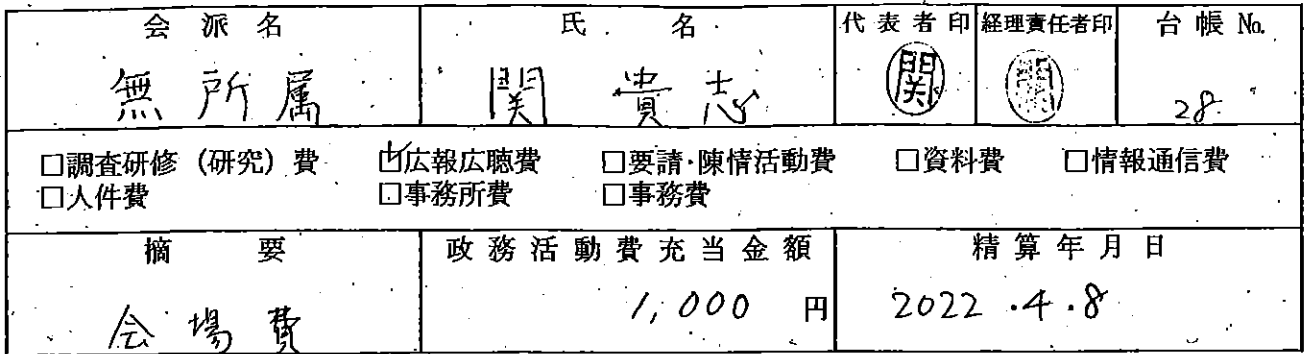 会派名 氏名 代表者印 経理責任者印 台帳No.
無所属 関 貴志 関 関 28
□調査研修（研究）費 ☑広報広聴費 □要請・陳情活動費 □資料費 □情報通信費
□人件費 □事務所費 □事務費
摘要 政務活動費充当金額 精算年月日
会場費 1,000円 2022.4.8